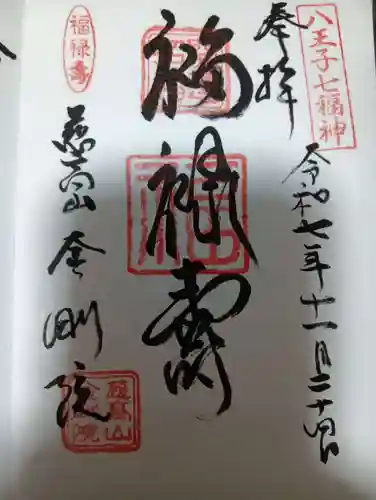 八王子七福神
奉拝
令和七年十一月二十四日
福禄寿
福禄寿
慈高山 金剛院
慈高山
金剛院